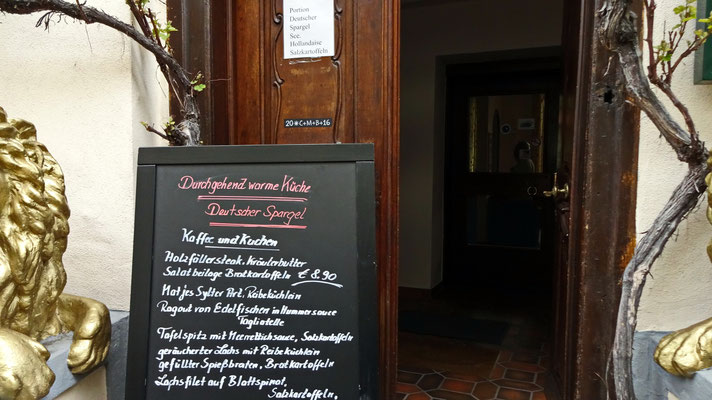 Portion
Deutscher
Spargel
Sce.
Hollandaise
Salzkartoffeln
20*C+M+B+16
Durchgehend warme Küche
Deutscher Spargel
Kaffee und Kuchen
Holzfällersteak, Kräuterbutter
Salatbeilage Bratkartoffeln € 8,90
Matjes Sylter Art, Reibeküchlein
Ragout von Edelfischen in Hummersauce
Tagliatelle
Tafelspitz mit Meerrettichsauce, Salzkartoffeln
geräucherter Lachs mit Reibeküchlein
gefüllter Spießbraten, Bratkartoffeln
Lachsfilet auf Blattspinat,
Salzkartoffeln,